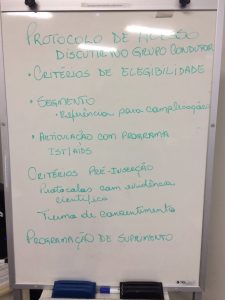 PROTOCOLO DE ACESSO
DISCUTIR NO GRUPO CONDUTOR
• CRITÉRIOS DE ELEGIBILIDADE
• SEGMENTO
• Referência para complicações
• ARTICULAÇÃO COM PROGRAMA
IST/AIDS
CRITÉRIOS PRÉ-INSERÇÃO
Protocolos com evidência
científica
Termo de consentimento
PROGRAMAÇÃO DE SUPRIMENTO